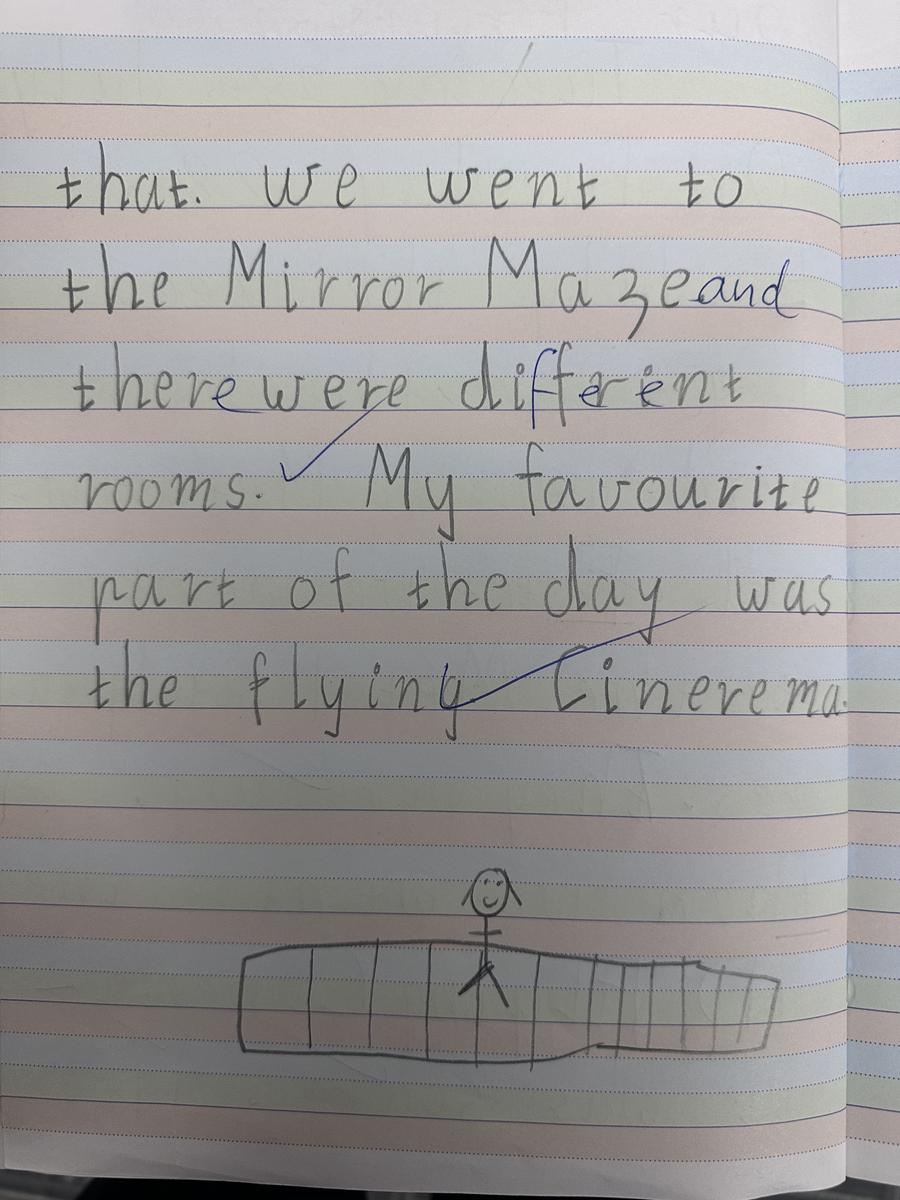 that. we went to
the Mirror Maze and
there were different
rooms. My favourite
part of the day was
the flying Cinerema.